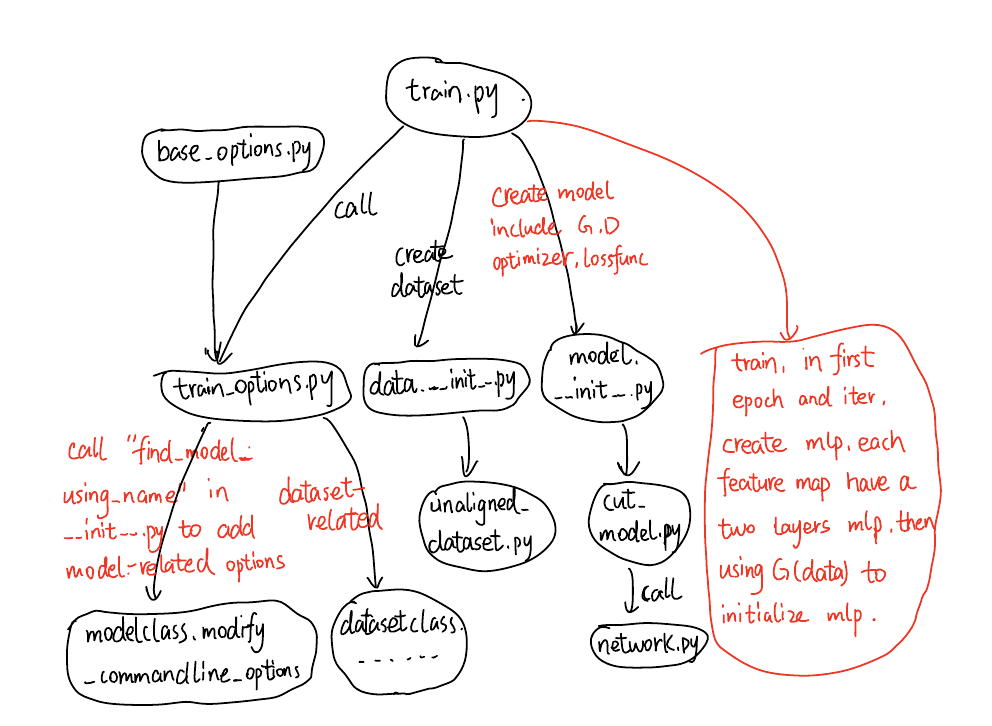 train.py
base_options.py
call
create
dataset
Create model
include G.D
optimizer.lossfunc
train_options.py
data.__init__.py
model.
__init__.py
train, in first
epoch and iter.
create mlp.each
feature map have a
two layers mlp.then
using G(data) to
initialize mlp.
call "find_model_
using_name" in
__init__.py to add
model-related options
dataset-
related
unaligned_
dataset.py
cut_
model.py
call
network.py
modelclass.modify
_commandline_options
datasetclass.
......